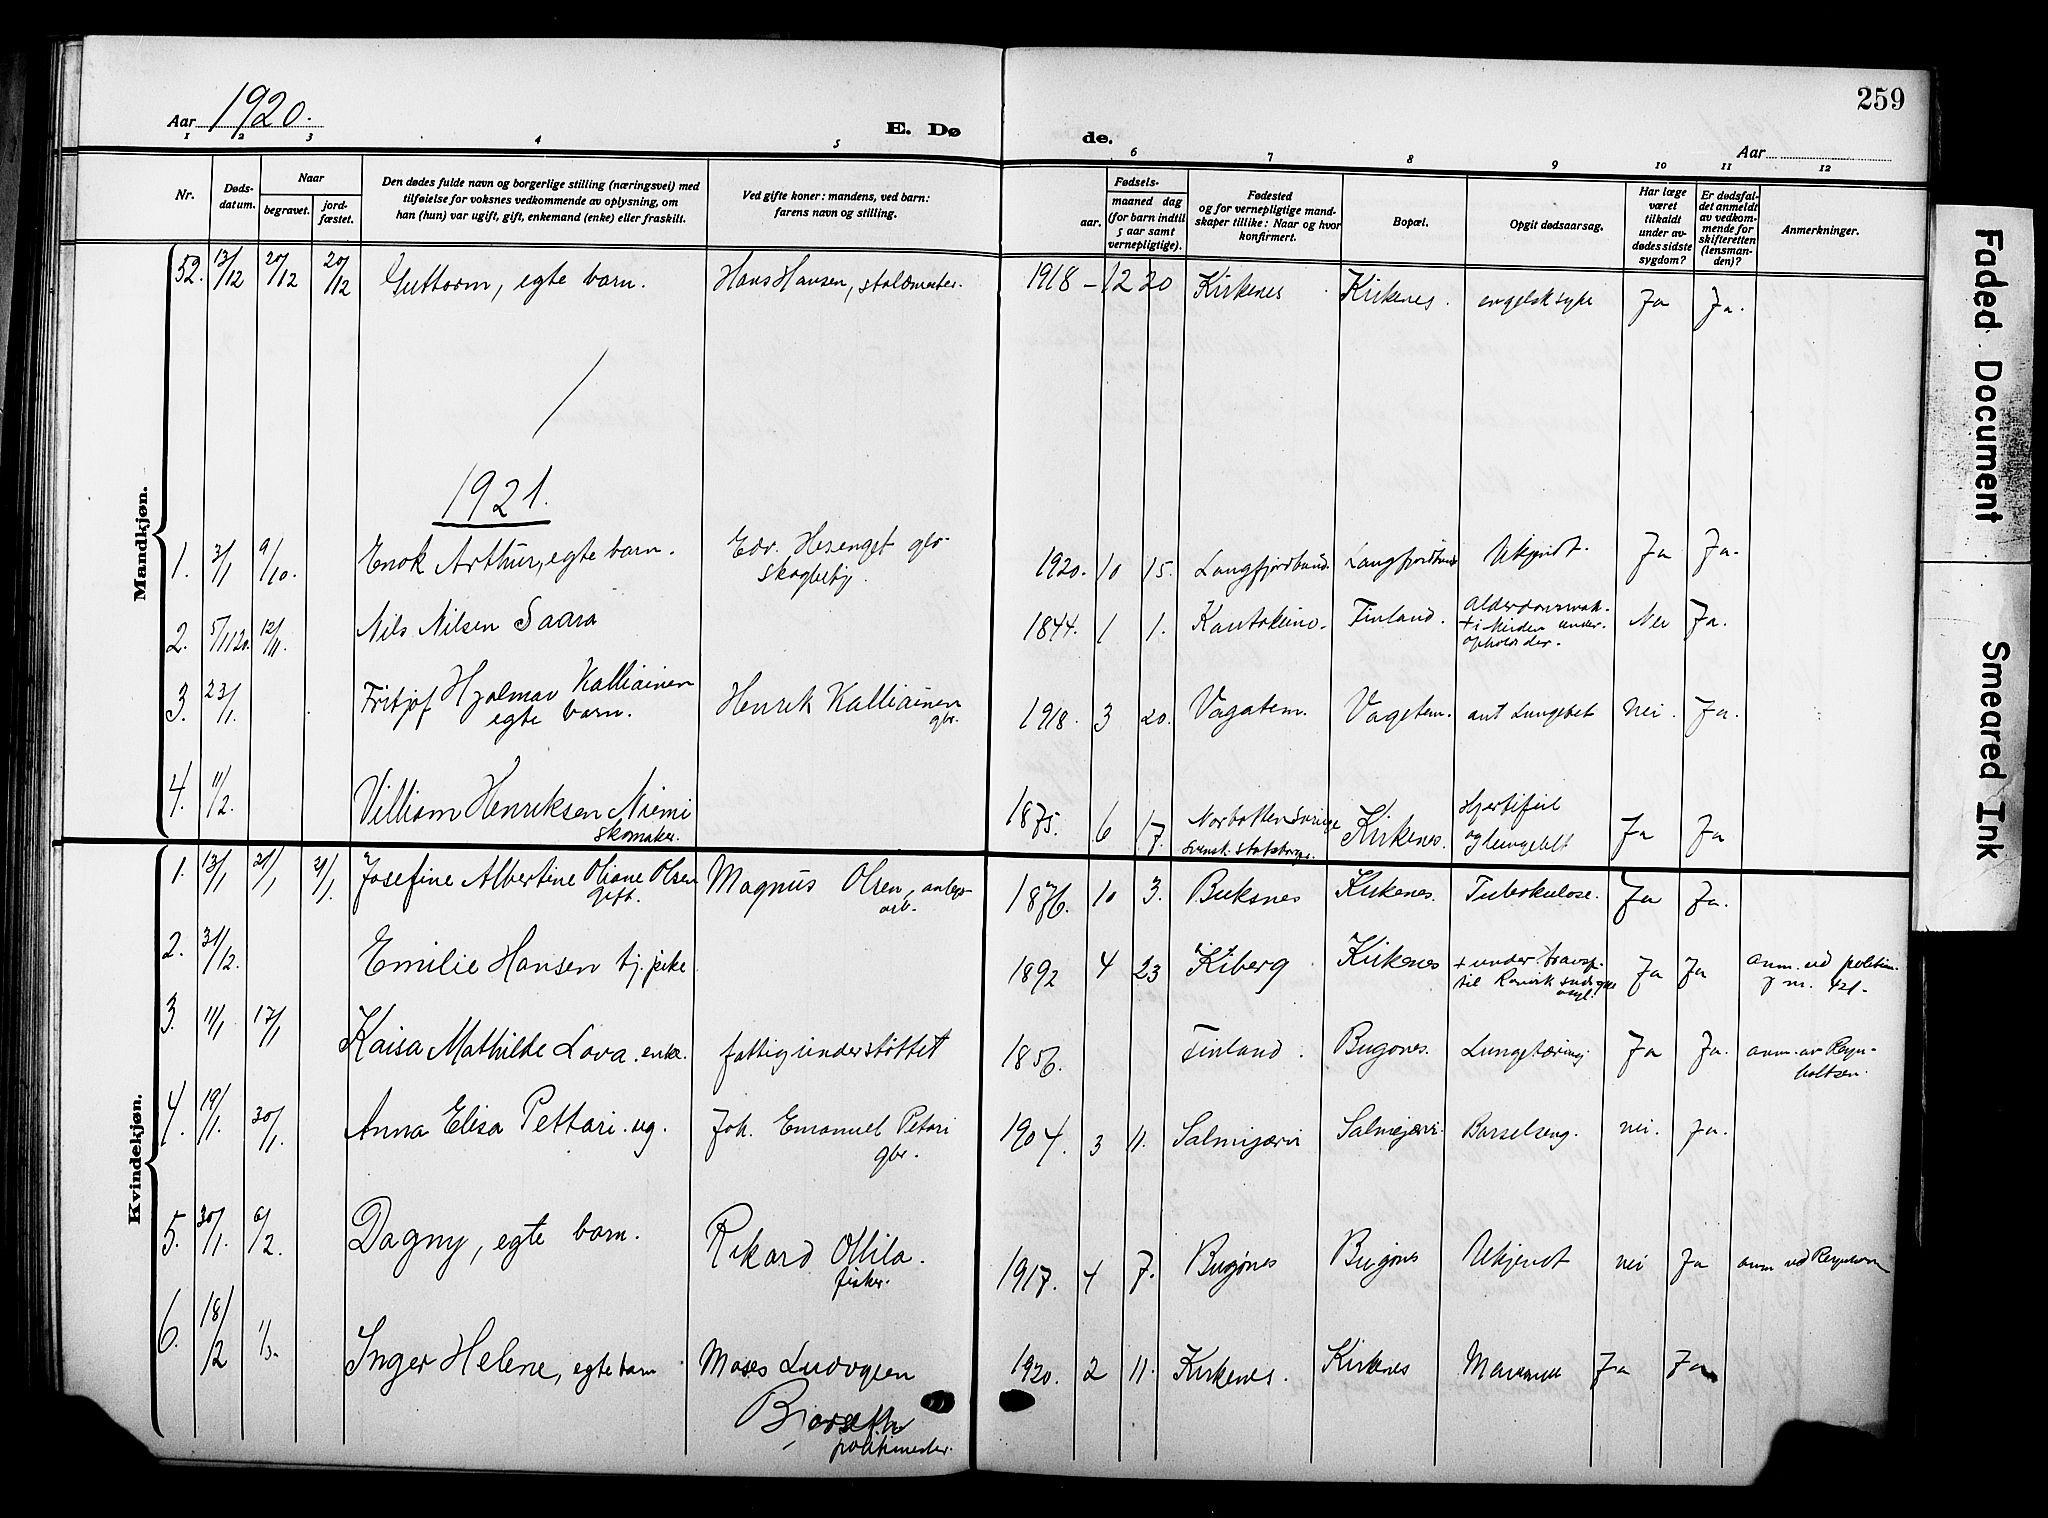 259
Aar 1920.
E. Dø de.
Aar
1 2 3 4 5 6 7 8 9 10 11 12
Nr.
Døds-
datum.
Naar
begravet.
jord-
fæstet.
Den dødes fulde navn og borgerlige stilling (næringsvei) med
tilføielse for voksnes vedkommende av oplysning, om
han (hun) var ugift, gift, enkemand (enke) eller fraskilt.
Ved gifte koner: mandens, ved barn:
farens navn og stilling.
Fødsels-
aar.
maaned dag
(for barn indtil
5 aar samt
vernepligtige).
Fødested
og for vernepligtige mand-
skaper tillike: Naar og hvor
konfirmert.
Bopæl.
Opgit dødsaarsag.
Har læge
været
tilkaldt
under av-
dødes sidste
sygdom?
Er dødsfal-
det anmeldt
av vedkom-
mende for
skifteretten
(lensman-
den)?
Anmerkninger.
Mandkjøn.
52. 13/12 20/12 20/12 Guttorm, egte barn. Hans Hansen, 1918 - 12 20 Kirkenes Kirkenes. engelsk syke Ja Ja.
1921.
1. 3/1 9/10. Enok Arthur, egte barn. Edv. Hesenget gbr.
1920. 10 15. Langfjordbund. Langfjordbund Ukjendt. Ja Ja.
2. 5/1120. 12/11. Nils Nilsen Saara 1844. 1 1. Kautokeino. Finland. Nei Ja.
3. 23/1. Fritjof Hjalmar Kalliainen
egte barn. Henrik Kalliainen
gbr. 1918. 3 20. Vagatem. Vagatem. ant Lungebet. Nei. Ja.
4. 11/2. Villiam Henriksen Niemi
skomaker. 1875. 6 17. Norbotten Sverige
svensk statsborger. Kirkenes. Hjertefeil
og Ja Ja
Kvindekjøn.
1. 13/1 21/1 21/1 Josefine Albertine Oliane Olsen
gift. Magnus Olsen, anlegs
arb. 1876. 10 3. Buksnes Kirkenes. Tuberkulose. Ja Ja.
2. 31/12. Emilie Hansen tj. pike 1892 4 23 Kiberg Kirkenes + under transp.
til Ja Ja anm. ved politim.
3. 11/1 17/1 Kaisa Mathilde Lava. enke. fattigunderstøttet 1856. Finland. Bugønes. Lungetæring. Ja Ja. anm. av Reyn-
holtsen.
4. 19/1. 30/1. Anna Elisa Pettari. ug. Joh. Emanuel Petari
gbr. 1904. 3 11. Salmijærvi Salmijærvi. Barselseng. nei. Ja.
5. 30/1. 6/2. Dagny, egte barn. Rikard Ollila.
fisker. 1917. 4 7. Bugønes Bugønes Ukjendt nei Ja anm ved
6. 18/2 1/3. Inger Helene, egte barn Moses Ludvigsen
Bjørseth
politimester. 1920. 2 11. Kirkenes. Kirkenes Ja Ja.
Faded Document
Smeared Ink